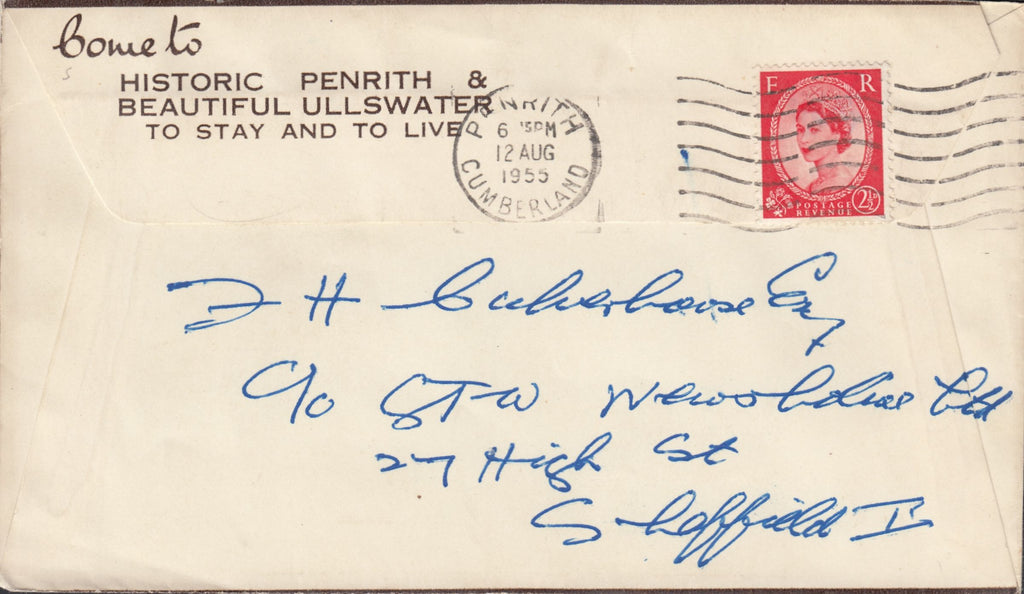 Come to
HISTORIC PENRITH &
BEAUTIFUL ULLSWATER
TO STAY AND TO LIVE
PENRITH
6 15PM
12 AUG
1955
CUMBERLAND
E R
POSTAGE
REVENUE
2½D
H Esq
C/o GTW Ltd
27 High St
Sheffield I